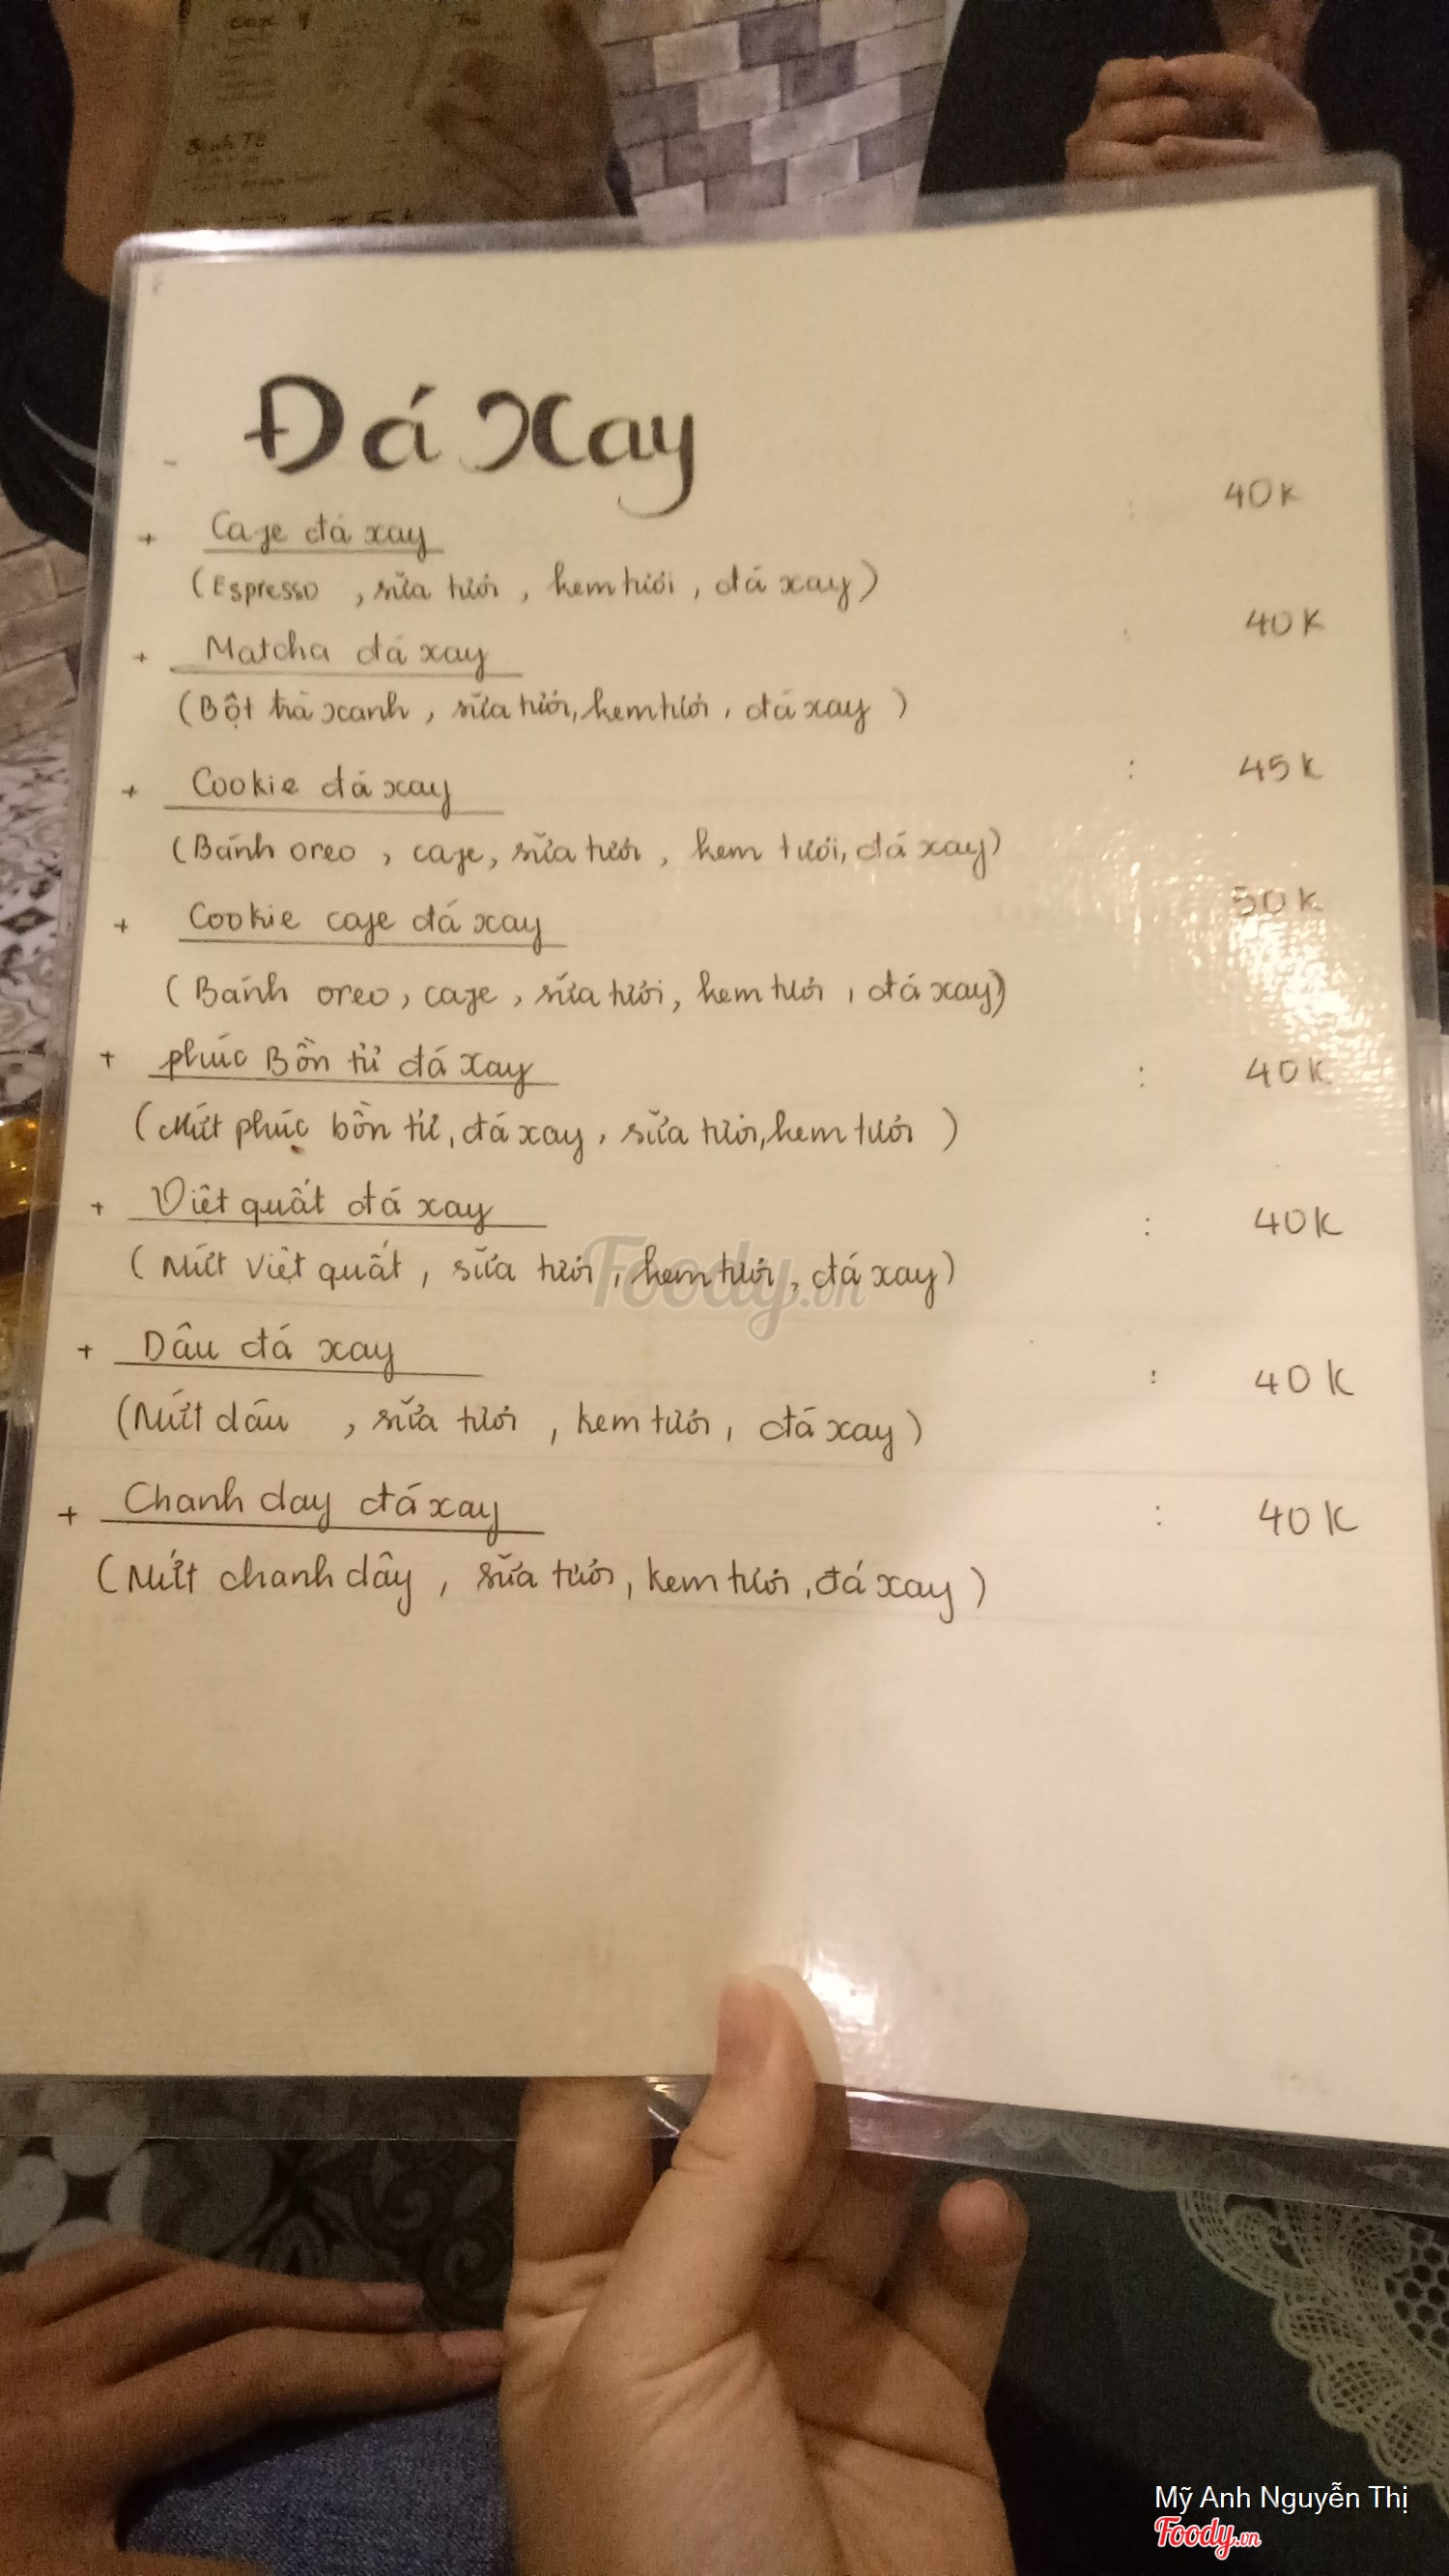 Bình Tố
Đá Xay
+ Cafe đá xay 40K
(Espresso , sữa tươi , kem tươi , đá xay)
+ Matcha đá xay 40K
(Bột trà xanh , sữa tươi, kem tươi , đá xay )
+ Cookie đá xay : 45K
(Bánh oreo , cafe, sữa tươi , kem tươi, đá xay)
+ Cookie cafe đá xay 50K
(Bánh oreo, cafe , sữa tươi, kem tươi , đá xay)
+ phúc Bồn tử đá Xay : 40K
(Mứt phúc bồn tử, đá xay , sữa tươi, kem tươi )
+ Việt quất đá xay : 40K
(Mứt việt quất , sữa tươi , kem tươi , đá xay)
+ Dâu đá xay : 40K
(Mứt dâu , sữa tươi , kem tươi , đá xay)
+ Chanh day đá xay : 40K
(Mứt chanh dây , sữa tươi , kem tươi , đá xay)
Foody.vn
Mỹ Anh Nguyễn Thị
Foody.vn